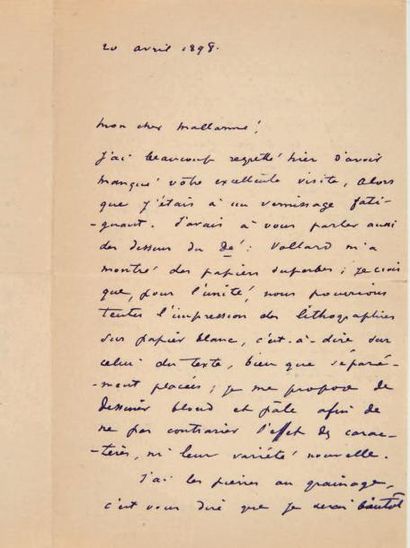 20 avril 1898.
Mon cher Mallarmé!
J'ai beaucoup regretté hier d'avoir
manqué votre excellente visite, alors
que j'étais à un vernissage fati-
-guant. J'avais à vous parler aussi
des dessins du Dé: Vollard m'a
montré des papiers superbes; je crois
que, pour l'unité, nous pourrions
tenter l'impression des lithographies
sur papier blanc, c'est-à-dire sur
celui du texte, bien que séparé-
-ment placées; je me propose de
dessiner blond et pâle afin de
ne pas contrarier l'effet des carac-
-tères, ni leur variété nouvelle.
J'ai les pierres au grainage,
c'est vous dire que je serai bientôt